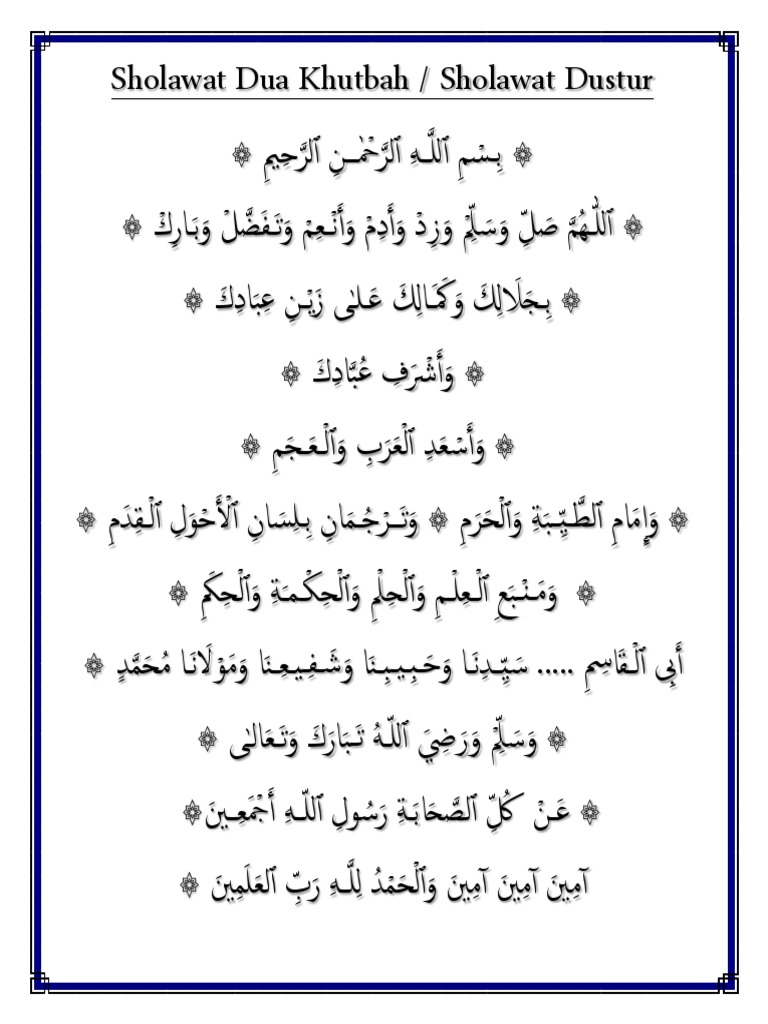 Sholawat Dua Khutbah / Sholawat Dustur
۞ بِسْمِ ٱللَّهِ ٱلرَّحْمَٰنِ ٱلرَّحِيمِ ۞
۞ ٱللّٰهُمَّ صَلِّ وَسَلِّمْ وَزِدْ وَأَدِمْ وَأَنْعِمْ وَتَفَضَّلْ وَبَارِكْ ۞
۞ بِجَلَالِكَ وَكَمَالِكَ عَلٰى زَيْنِ عِبَادِكَ ۞
۞ وَأَشْرَفِ عُبَّادِكَ ۞
۞ وَأَسْعَدِ ٱلْعَرَبِ وَٱلْعَجَمِ ۞
۞ وَإِمَامِ ٱلطَّيِّبَةِ وَٱلْحَرَمِ ۞ وَتَرْجُمَانِ بِلِسَانِ ٱلْأَحْوَلِ ٱلْقِدَمِ ۞
۞ وَمَنْبَعِ ٱلْعِلْمِ وَٱلْحِلْمِ وَٱلْحِكْمَةِ وَٱلْحِكَمِ ۞
أَبِى ٱلْقَاسِمِ ..... سَيِّدِنَا وَحَبِيبِنَا وَشَفِيعِنَا وَمَوْلَانَا مُحَمَّدٍ ۞
۞ وَسَلِّمْ وَرَضِيَ ٱللّٰهُ تَبَارَكَ وَتَعَالٰى ۞
۞ عَنْ كُلِّ ٱلصَّحَابَةِ رَسُولِ ٱللّٰهِ أَجْمَعِينَ ۞
آمِينَ آمِينَ آمِينَ وَٱلْحَمْدُ لِلَّهِ رَبِّ ٱلعَلَمِينَ ۞